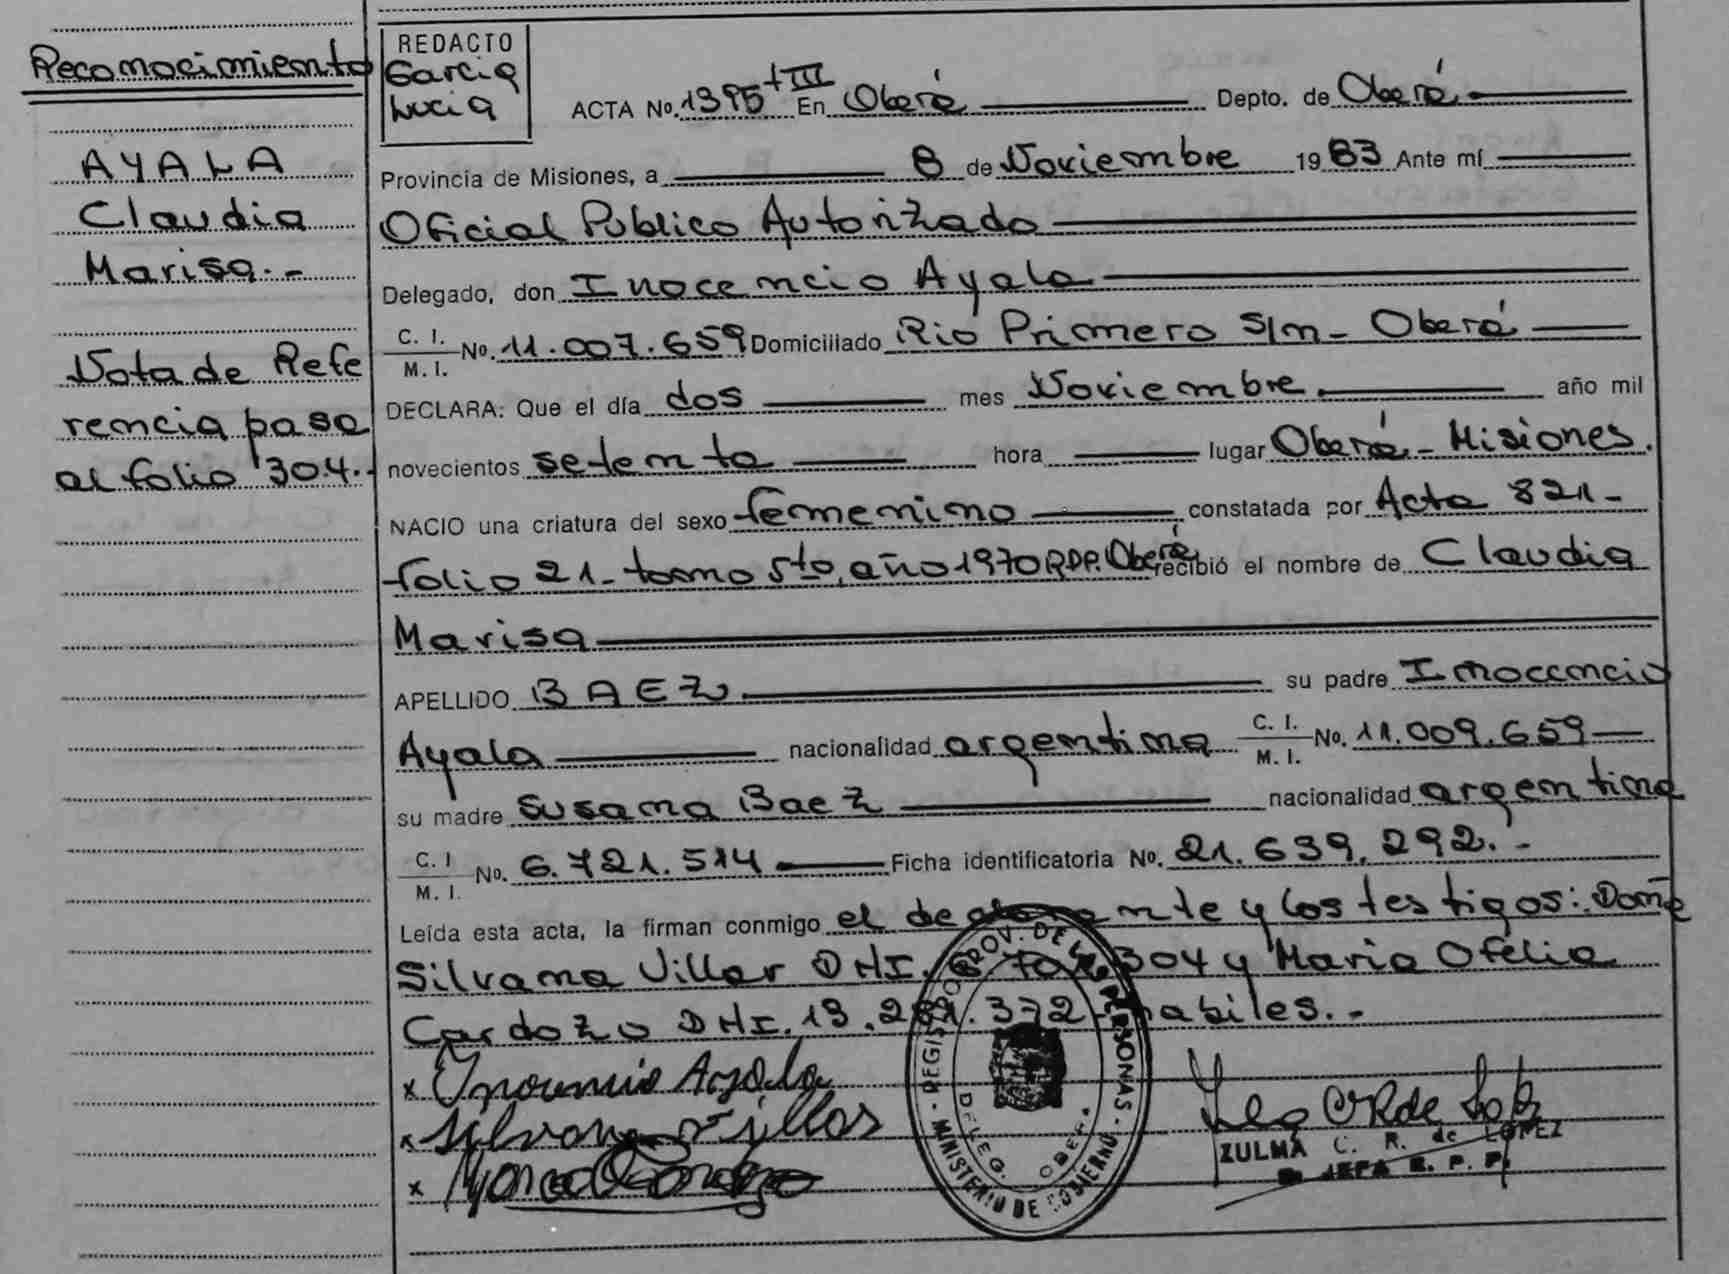 Reconocimiento
AYALA
Claudia
Marisa.-
Nota de Refe
rencia pasa
al folio 304.-
REDACTO
Garcia
Lucia
ACTA No. 1395 +III En Oberá Depto. de Oberá
Provincia de Misiones, a 8 de Noviembre 1983 Ante mí
Oficial Publico Autorizado
Delegado, don Inocencio Ayala
C. I. / M. I. No. 11.007.659 Domiciliado Rio Primero S/n - Oberá
DECLARA: Que el día dos mes Noviembre año mil
novecientos setenta hora lugar Oberá - Misiones.
NACIO una criatura del sexo femenino constatada por Acta 821-
folio 21- tomo 5to, año 1970 RDP. Oberá recibió el nombre de Claudia
Marisa
APELLIDO BAEZ su padre Inocencio
Ayala nacionalidad argentina C. I. / M. I. No. 11.009.659
su madre Susana Baez nacionalidad argentina
C. I / M. I. No. 6.721.514 Ficha identificatoria No. 21.639.292.-
Leída esta acta, la firman conmigo el declarante y los testigos: Doña
Silvana Villar DNI. 304 y Maria Ofelia
Cardozo DNI. 13.281.372 habiles.-
x Inocencio Ayala
x Silvana Villar
x
REGISTRO PROV. DE LAS PERSONAS - MINISTERIO DE GOBIERNO -
DELEG. OBERA
ZULMA C. R. de LOPEZ
JEFA R. P. P.